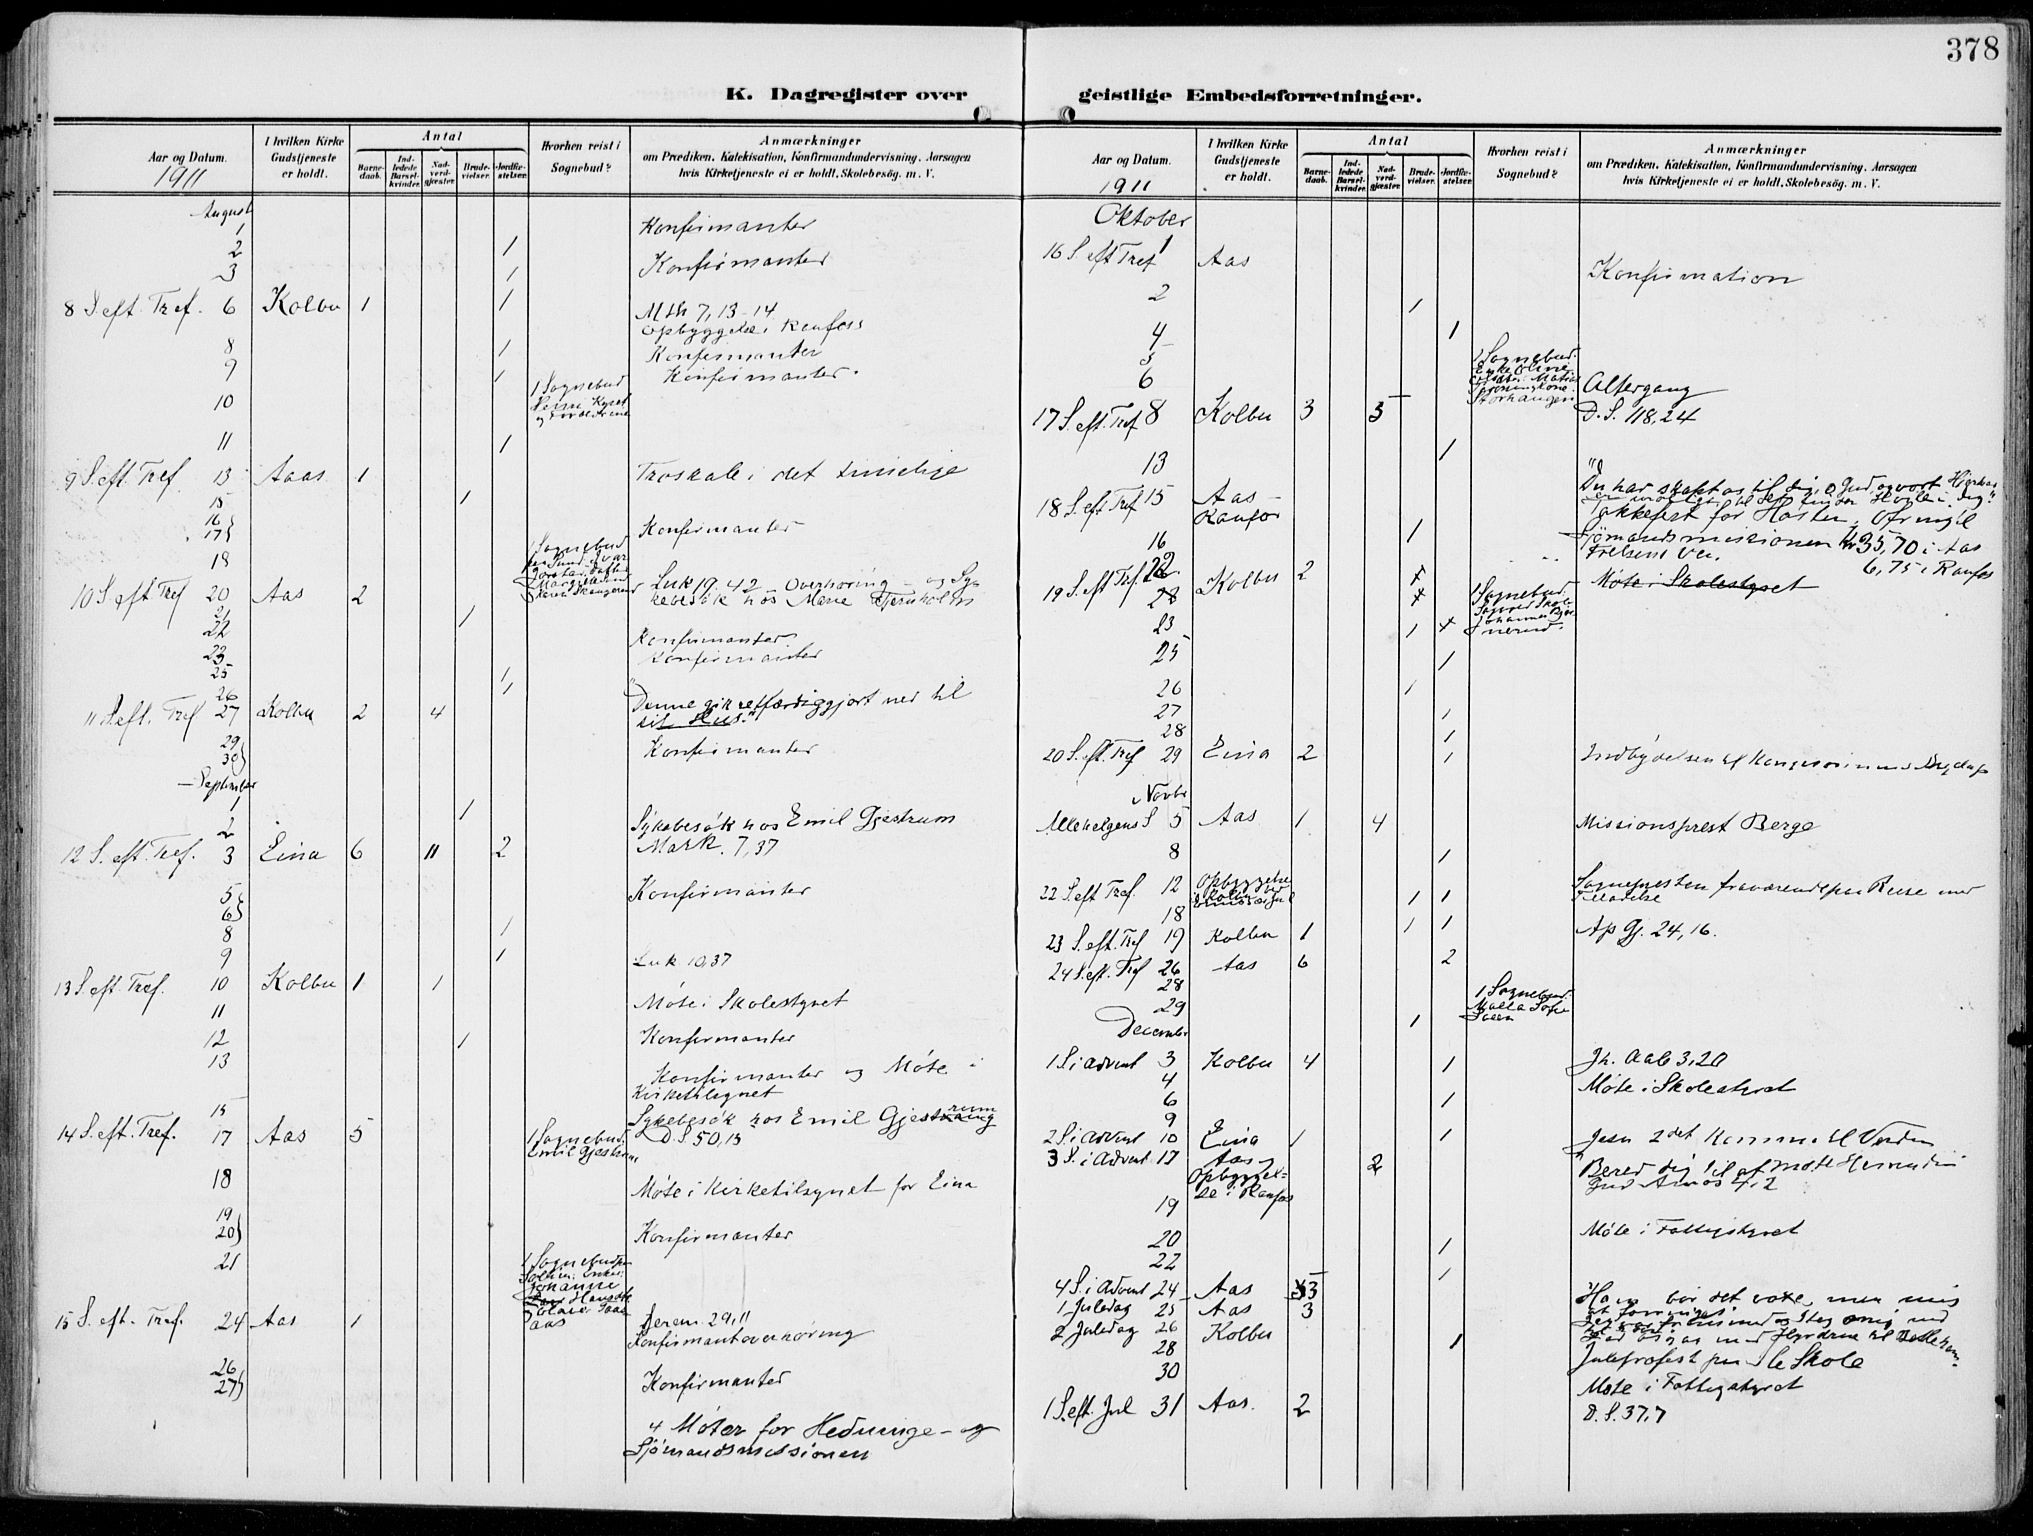 378
K. Dagregister over
geistlige Embedsforretninger.
Aar og Datum.
1911
I hvilken Kirke
Gudstjeneste
er holdt.
Antal
Barne-
daab.
Ind-
ledede
Barsel-
kvinder.
Nad-
verd-
gjæster.
Brude-
vielser.
Jordfæ-
stelser.
Hvorhen reist i
Sognebud?
Anmærkninger
om Prædiken, Katekisation, Konfirmandundervisning, Aarsagen
hvis Kirketjeneste ei er holdt, Skolebesög. m. V.
August
1 Konfirmanter
2 1
3 1 Konfirmanter
8 S. eft. Tref. 6 Kolbu 1 1 Mth 7, 13-14
Opbyggelse i Raufoss
8 1 Konfirmanter
9 1 Konfirmanter.
10 1 Sognebud
11 1
9 S. eft. Tref 13 Aaas 1 Troskab i det timelige
15 1
16
17 Konfirmanter
18 1 Sognebud
10 S eft Tref 20 Aas 2 Luk 19, 42 Overhøring - og Sy-
kebesøk hos Marie
21 1
22 Konfirmanter
23 Konfirmanter
25 1
26 1
11 S. eft. Tref 27 Kolbu 2 4 "Denne gik retfærdiggjort ned til
sit Hus."
29
30 Konfirmanter
September
1 1
2 Sykebesøk hos Emil Gjestrum
12 S. eft. Tref. 3 Eina 6 11 2 Mark. 7, 37
5
6 Konfirmanter
8 1
9 1 Luk 10,37
13 S eft. Tref. 10 Kolbu 1 1
11 Møte i Skolestyret
12 1 Konfirmanter
13 Konfirmanter og Møte i
Kirketilsynet
15 Sykebesøk hos Emil Gjestrum
14 S. eft. Tref. 17 Aas 5 1 Sognebud. D. S 50,15
Emil Gjestrum
18 Møte i Kirketilsynet for Eina
19
20 Konfirmanter
21 1 Sognebud
Johanne
15 S. eft. Tref. 24 Aas 1 Jerem. 29, 11
Konfirmantoverhøring
26
27 Konfirmanter
4 Møter for Hedninge- og
Sjömandsmissionen
Aar og Datum.
1911
I hvilken Kirke
Gudstjeneste
er holdt.
Antal
Barne-
daab.
Ind-
ledede
Barsel-
kvinder.
Nad-
verd-
gjæster.
Brude-
vielser.
Jordfæ-
stelser.
Hvorhen reist i
Sognebud?
Anmærkninger
om Prædiken, Katekisation, Konfirmandundervisning, Aarsagen
hvis Kirketjeneste ei er holdt, Skolebesög. m. V.
Oktober
16 S. eft Tref 1 Aas Konfirmation
2 1
4 1
5 1 Sognebud.
6 Altergang
17 S. eft. Tref 8 Kolbu 3 3 D. S. 118, 24
13 1
18 S. eft Tref 15 Aas - "Du har skapt os til dig, o Gud, og vort Hjerte
Raufos Takkefest for Høsten. Ofring til
16 1 Sjömandsmissionen Kr 35,70 i Aas
Frelsens Vei. 6,75 i Raufos
19 S. eft Tref. 22 Kolbu 2 1 Sognebud Møte i Skolestyret
23 1
25 1
26 1
27 1
28 1
20 S. eft. Tref 29 Eina 2 1 Indbydelsen til Kongesönnens Bryllup
Novbr
Allehelgens S 5 Aas 1 4 Missionsprest Berge
8 1
22 S. eft Tref. 12 Opbyggelse Sognepresten fraværende paa Reise med
Tilladelse
18 1 1
23 S. eft. Tref 19 Kolbu 1 1 1 Ap Gj. 24, 16.
24 S. eft. Tref 26 Aas 6 2
28
29 1 Sognebud
December 1
1 S i Advent 3 Kolbu 4 1 Jh. Aab 3, 20
4 Møte i Skolestyret
6 1
9
2 S. i Advent 10 Eina 1 1 Jesu 2det Komme til Verden
3 S. i Advent 17 Aas 2 "Bered dig til at møte Herren din
Opbyggel-
se i Raufos Gud Amos 4, 2
19 Møte i Fattigstyret
20 1
22 1
4 S. i Advent 24 Aas 3 Ham bör det voxe, men mig
at forringes
1 Juledag 25 Aas 3
2 Juledag 26 Kolbu Lad os gaa med Hyrderne til Betlehem.
28 1 Juletræfest paa Skole
30 Møte i Fattigstyret
1 S. eft. Jul 31 Aas. 2 D. S. 37, 7